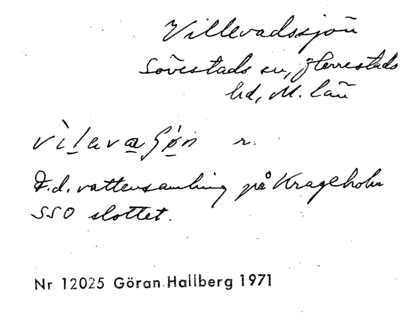 Villevadssjön
Sövestads sn, Herrestads
hd, M. län
r.
F.d. vattensamling på Krageholm
SSO slottet.
Nr 12025 Göran Hallberg 1971